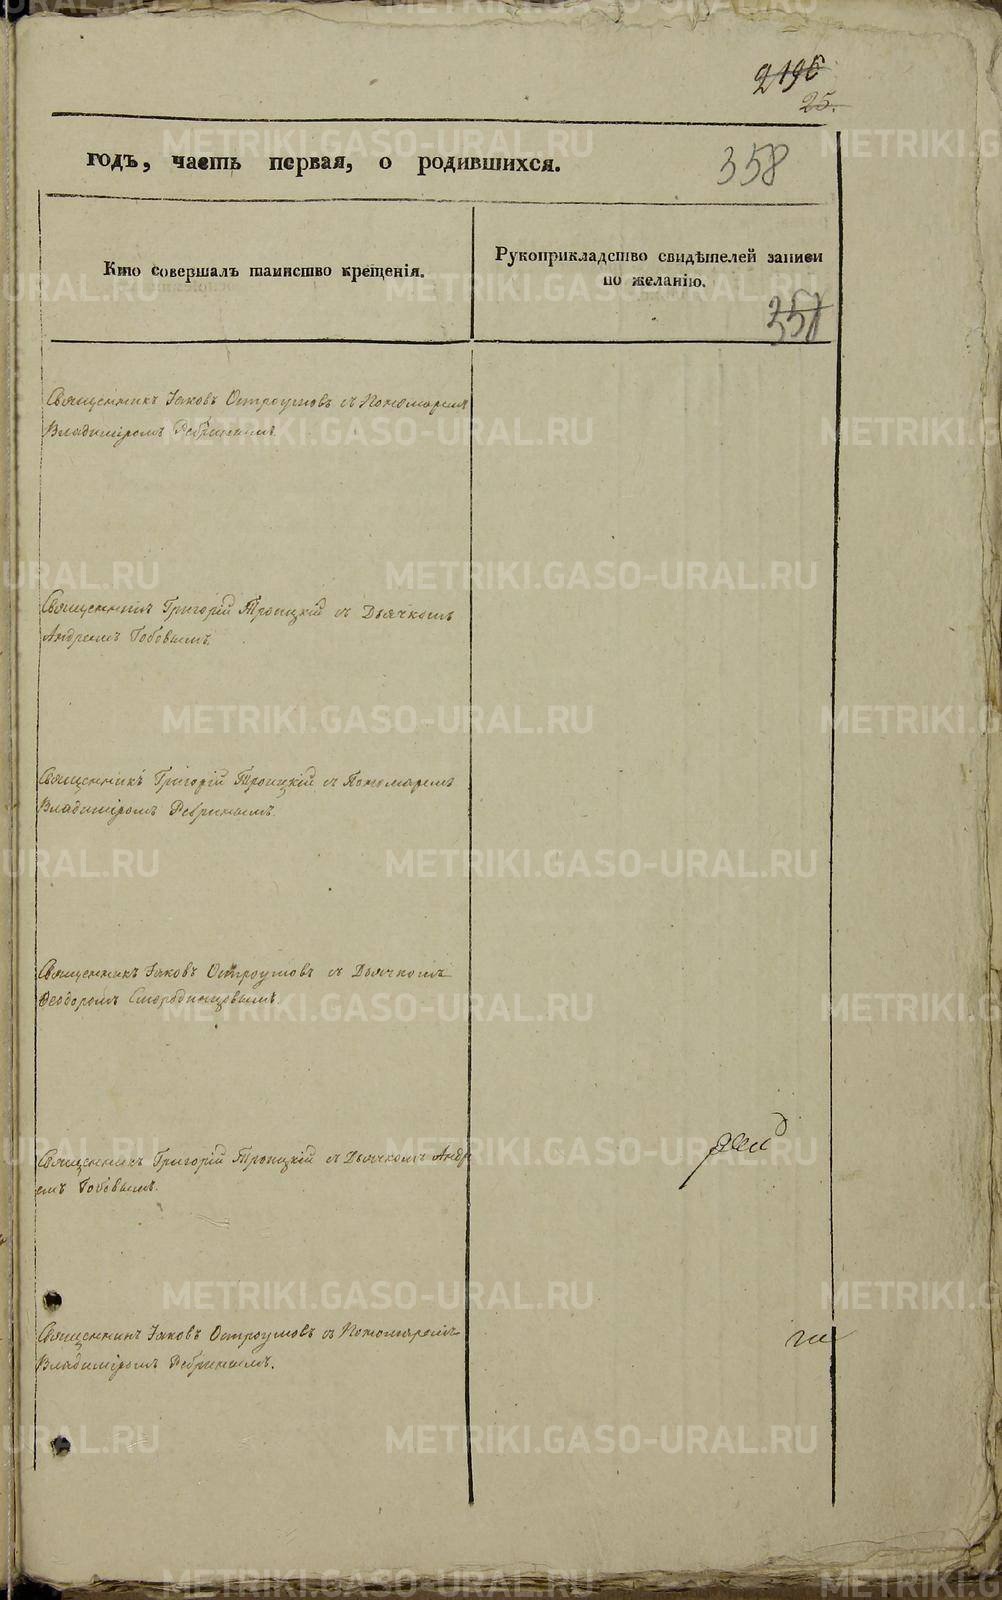 25.
годъ, часть первая, о родившихся.
358
Кто совершалъ таинство крещенія.
Рукоприкладство свидѣтелей записи
по желанію.
Священникъ Іаковъ Остроумовъ съ Пономаремъ
Владиміромъ Ребринымъ.
Священникъ Григорій Троицкій съ Дьячкомъ
Андреемъ Бобовымъ.
Священникъ Григорій Троицкій съ Пономаремъ
Владиміромъ Ребринымъ.
Священникъ Іаковъ Остроумовъ съ Дьячкомъ
Ѳеодоромъ Смородинцовымъ.
Священникъ Григорій Троицкій съ Дьячкомъ Андре
емъ Бобовымъ.
Священникъ Іаковъ Остроумовъ съ Пономаремъ
Владиміромъ Ребринымъ.
METRIKI.GASO-URAL.RU